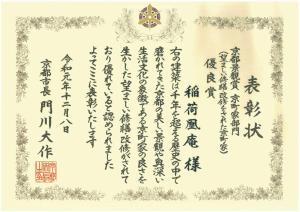 表彰状
京都景観賞 京町家部門
(望ましい修繕・改修をされた京町家)
優良賞
稲荷鳳庵 様
右の建築は千年を超える歴史の中で
磨かれてきた京都の美しい景観や奥深い
生活文化の象徴である京町家の良さを
生かした望ましい修繕・改修がされて
おり優れていると認められました
よってここに表彰いたします
令和元年十二月八日
京都市長 門川大作